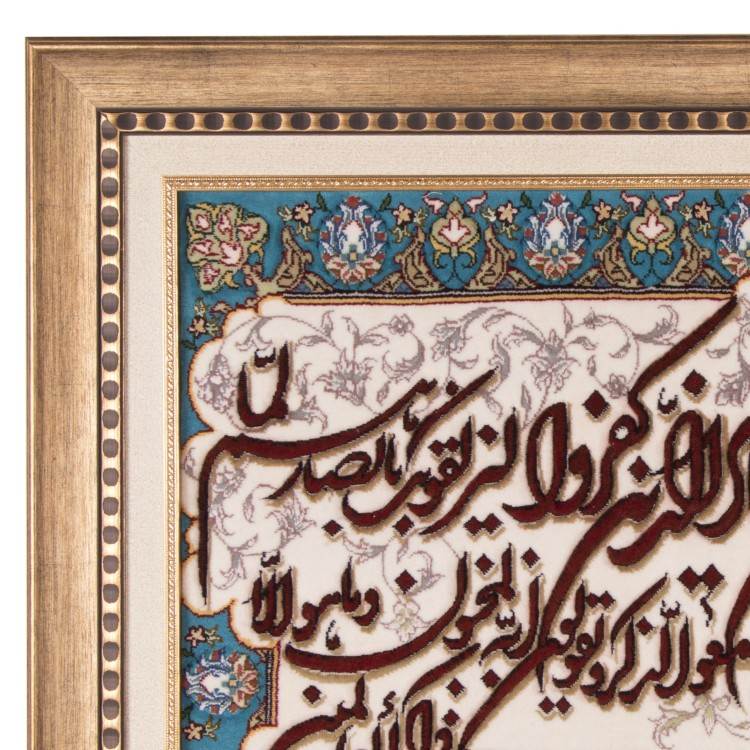 الذین کفروا لیزلقونک بابصارهم لما
سمعوا الذکر و یقولون انه لمجنون وما هو الا
ذکر للعالمین